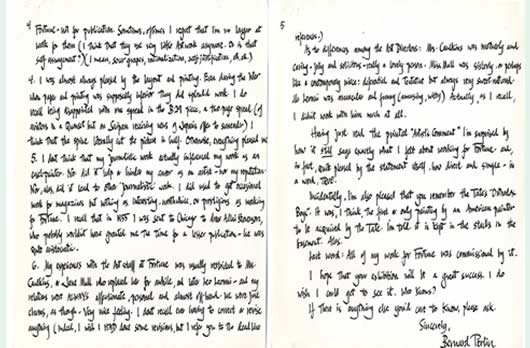 4
Fortune - not for publication. Sometimes, oftimes I regret that I'm no longer at
work for them (I think that they use very little Artwork anymore. Or is that
self assuagement?) (I mean, sour grapes, rationalization, self-justification, ok, ok.)
4. I was almost always pleased by the layout and printing. Even during the War
when paper and printing was supposedly inferior they did splendid work. I do
recall being disappointed with one spread in the B-29 piece, a two-page spread (of
aviators in a Quonset hut on Saipan receiving news of Japan's offer to surrender.) I
think that the spine literally cut the picture in half. Otherwise, everything pleased me
5. I don't think that my journalistic work actually influenced my work as an
easel-painter. Nor did it help or hinder my career as an artist - nor my reputation.
Nor, alas, did it lead to other journalistic work. I did used to get occasional
work for magazines but nothing as interesting, worthwhile, or prestigious as working
for Fortune. I recall that in 1955 I was sent to Chicago to draw Adlai Stevenson,
who probably wouldn't have granted me the time for a lesser publication - he was
quite aristocratic.
6. My experiences with the Art staff at Fortune was usually restricted to Mrs.
Caulkins, a Jane Mull who replaced her for awhile, and later Leo Lionni - and my
relations were ALWAYS affectionate, personal and almost off-hand - we were fine
chums, as though - very nice feeling. I don't recall ever having to correct or revise
anything (indeed, I wish I HAD done some versions, but I keep you to the dead line
5
reference.)
As to differences among the Art Directors: Mrs. Caulkins was motherly and
caring - jolly and solicitous - really a lovely person. Miss Mull was sisterly, or perhaps
like a contemporary niece: deferential and tentative but always very sweet-natured.
Mr Lionni was avuncular and funny (amusing, witty) Actually, as I recall,
I didn't work with him much at all.
Having just read the printed "Artist's Comment" I'm surprised by
how it still says exactly what I felt about working for Fortune - and,
in fact, quite pleased by the statement itself, how direct and simple - in
a word, true.
Incidentally, I'm also pleased that you remember the Tate's "Orthodox
Boys". It was, I think, the first & only painting by an American painter
to be acquired by the Tate. I'm told it is kept in the stacks in the
basement. Alas.
Last word: All of my work for Fortune was commissioned by it.
I hope that your exhibition will be a great success. I do
wish I could get to see it. Who knows?
If there is anything else you'd care to know, please ask.
Sincerely,
Bernard Perlin